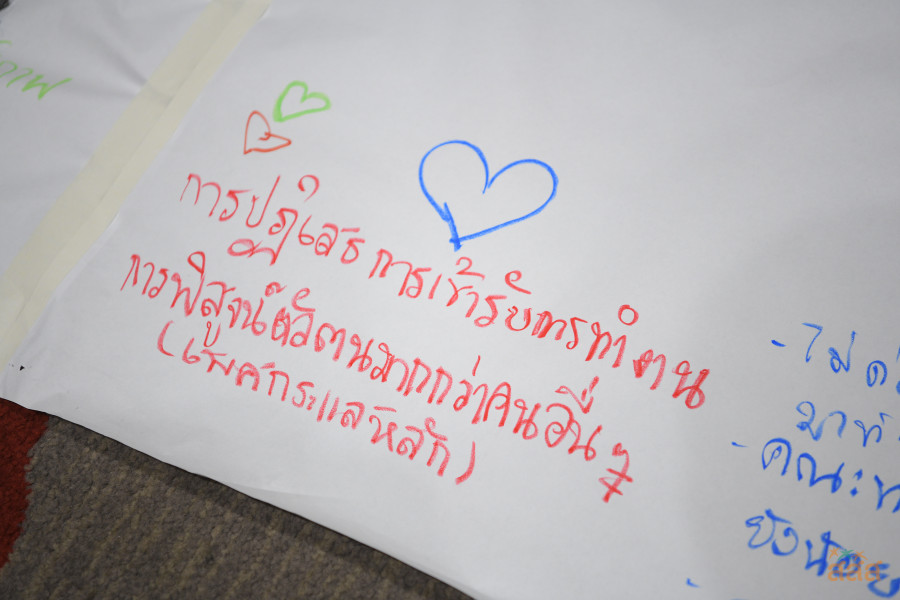 การปฏิเสธ การเข้ารับการทำ ตน
การพิสูจน์ตัวตนมากกว่าคนอื่น ๆ
(เพศกระแสหลัก)
- ไม่
- คณะ
ยังน้อย